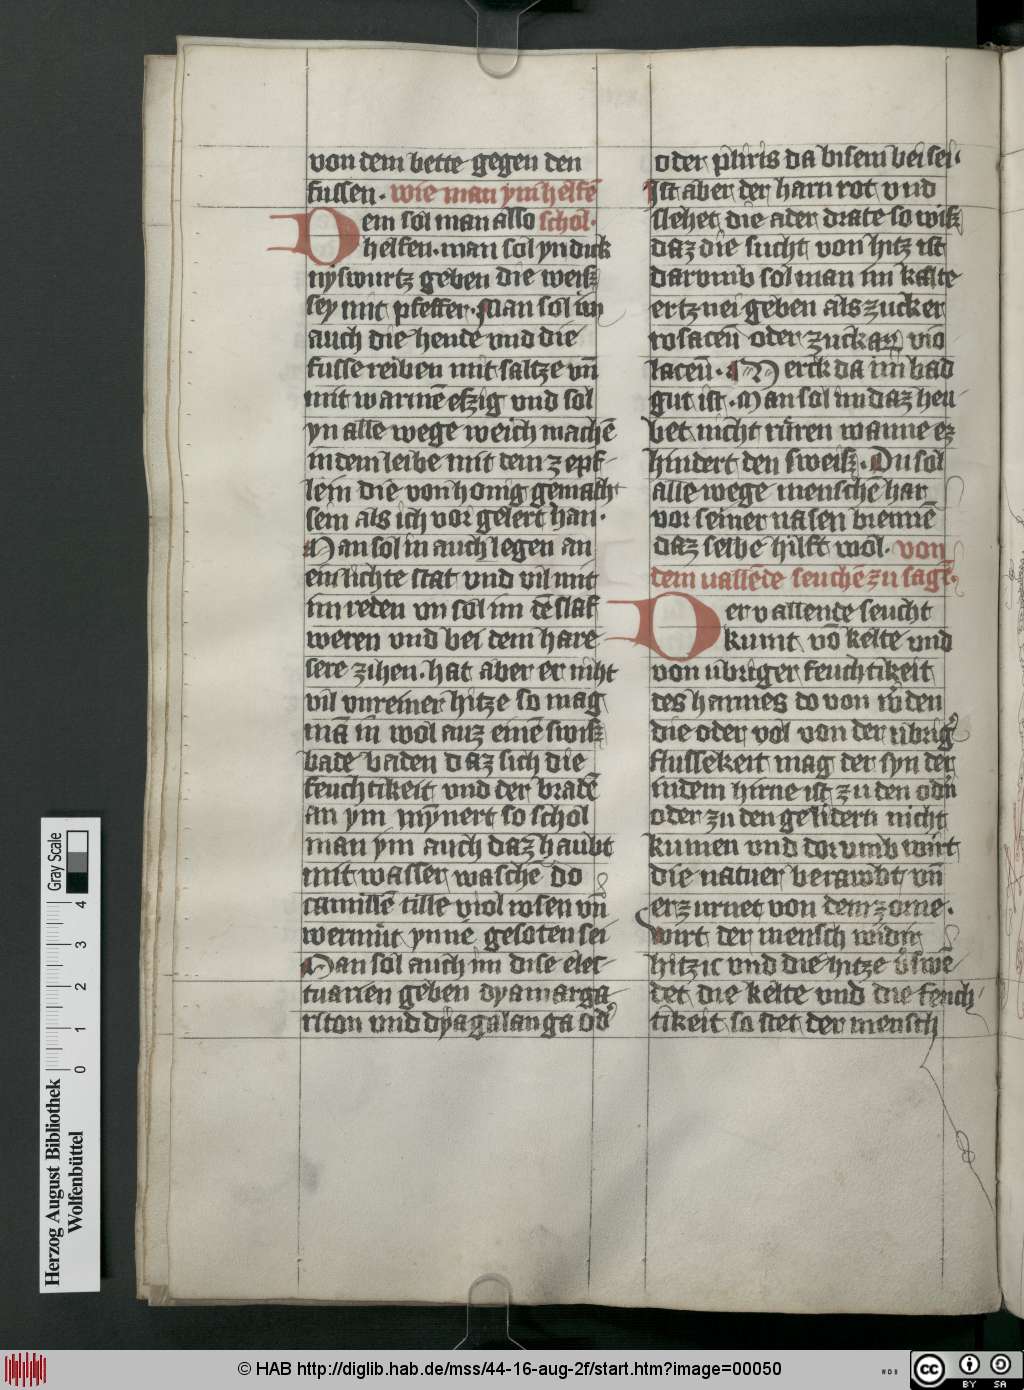 von dem bette gegen den
fussen. wie man ym helfē
Dem sol man also schol.
helfen. man sol yn dick
nyswurtz geben die weisz
sey mit pfeffer. Man sol im
auch die hende vnd die
fusse reiben mit saltze vn̄
mit warmē eszig vnd sol
yn alle wege weich machē
in dem leibe mit dem zepf
lein die von honig gemacht
sein als ich vor gelert han.
Man sol in auch legen an
ein lichte stat vnd vil mit
im reden vn sol im dē slaf
weren vnd bei dem hare
sere zihen. hat aber er niht
vil vnreiner hitze so mag
mā in wol auz einē swisz
bade baden daz sich die
feuchtikeit vnd der bradē
an ym mynert so schol
man ym auch daz haubt
mit wasser waschē do
camillē tille viol rosen vn̄
wermut ynne gesoten sei
Man sol auch im dise elec
tuarien geben dyamarga
riton vnd dyagalanga od'
oder pliris da bisem bei sei.
Ist aber der harn rot vnd
slehet die ader drate so wisz
daz die sucht von hitz ist
darvmb sol man im kalte
ertznei geben als zucker
rosaceū oder zuckar vio
laceū. Merck da im bad
gut ist. Man sol im daz heu
bet nicht rüren wanne ez
hindert den sweisz. Du sol
alle wege menschē har
vor seiner nasen biennē
daz selbe hilft wol. von
dem uallēde seuchē zu sagē.
Der vallende seucht
kumt vō kelte vnd
von ubriger feuchtikeit
des harmes do von w'den
die oder vol von der ubrig'
flussekeit mag der syn der
in dem hirne ist zu den od'n
oder zu den gelidern nicht
kumen vnd dorumb wirt
die natuer berawbt vn̄
erzurnet von dem zorne.
wirt der mensch widir
hitzic vnd die hitze v'swē
det die kelte vnd die feuch
tikeit so stet der mensch
Gray Scale
0 1 2 3 4
Herzog August Bibliothek
Wolfenbüttel
© HAB http://diglib.hab.de/mss/44-16-aug-2f/start.htm?image=00050
WDB
cc BY SA